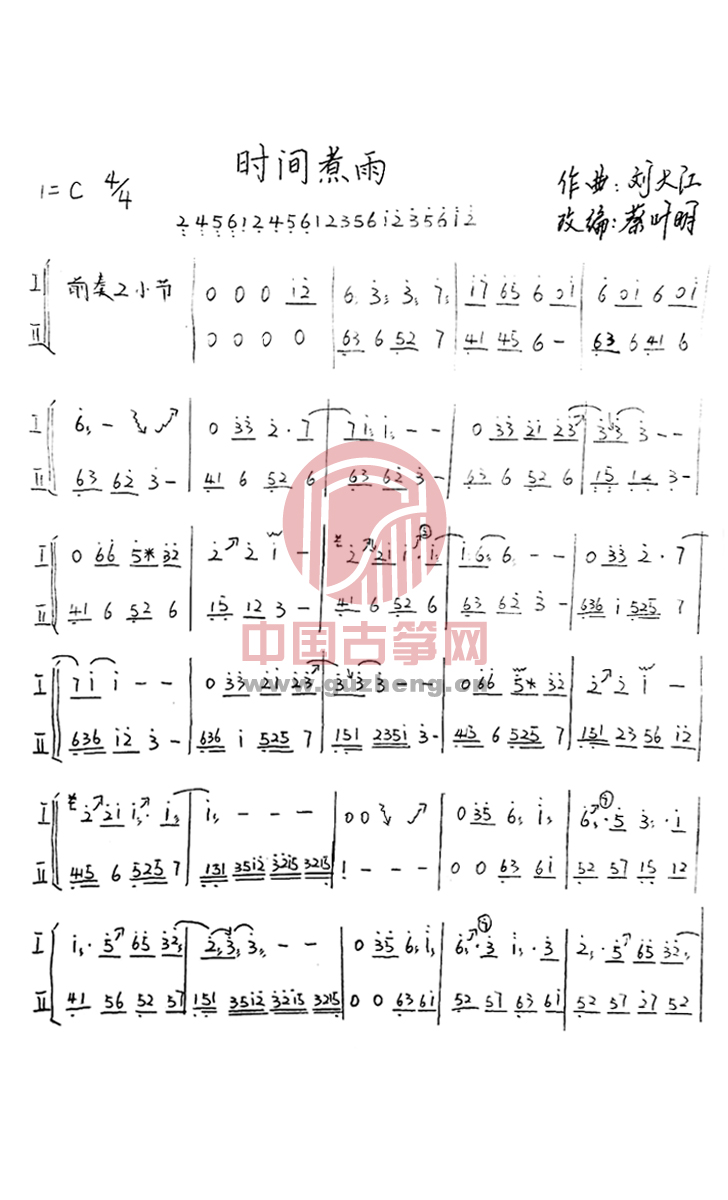 时间煮雨
1=C 4/4
作曲:刘大江
改编:蔡叶明
2 4 5 6 1 2 4 5 6 1 2 3 5 6 1 2 3 5 6 1 2
I 前奏2小节 | 0 0 0 i2 | 6 3 3 7 | i7 65 6 0i | 6 0i 6 0i
II | 0 0 0 0 | 63 6 52 7 | 41 45 6 - | 63 6 41 6
I 6 - | 0 33 2·7 | 7i i - - | 0 33 21 23 | 33 3 - -
II 63 62 3 - | 41 6 52 6 | 63 62 3 - | 63 6 52 6 | 15 12 3 -
I 0 66 5* 32 | 2 2 i - | 2 2i i·i | i6 6 - - | 0 33 2·7
II 41 6 52 6 | 15 12 3 - | 41 6 52 6 | 63 62 3 - | 636 i 525 7
中国古筝网
I 7i i - - | 0 33 21 23 | 33 3 - - | 0 66 5* 32 | 2 2 i -
www.guzheng.cn
II 636 i2 3 - | 636 i 525 7 | 151 235i 3 - | 45 6 525 7 | 151 23 56 i2
I 2 2i i·i | i - - - | 0 0 | 0 35 6 i | 6·5 3·i
II 45 6 525 7 | 151 35i2 3215 3215 | 1 - - - | 0 0 63 6i | 52 57 15 12
I i·5 65 32 | 2 3 3 - - | 0 35 6 i | 6·3 i·3 | 2·5 65 32
II 41 56 52 57 | 151 35i2 3215 3215 | 0 0 63 6i | 52 57 63 6i | 52 57 27 52